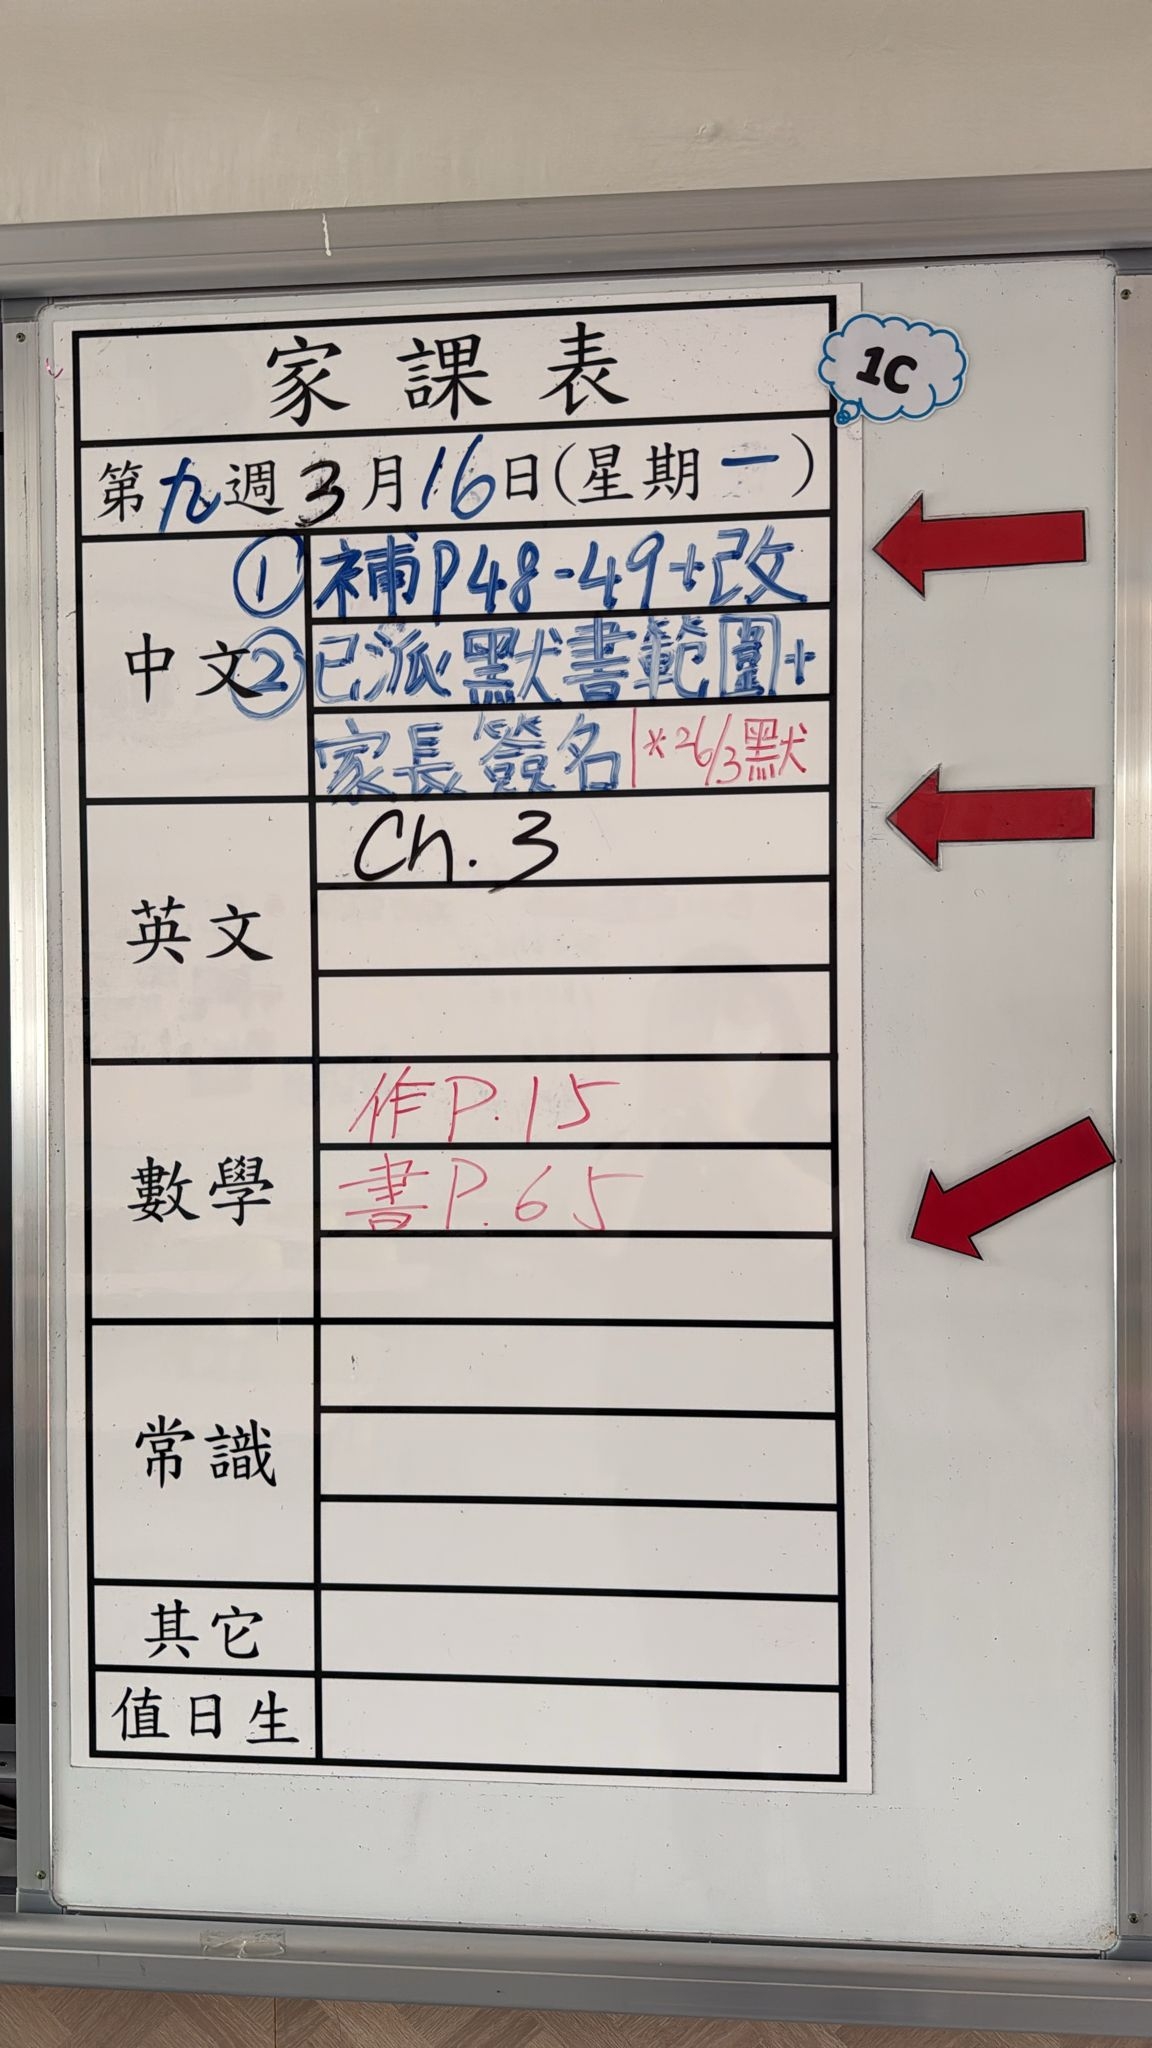 家課表
1C
第九週3月16日(星期一)
中文
①補P48-49+改
②已派默書範圍+
家長簽名|*26/3默
英文
Ch.3
數學
作P.15
書P.65
常識
其它
值日生